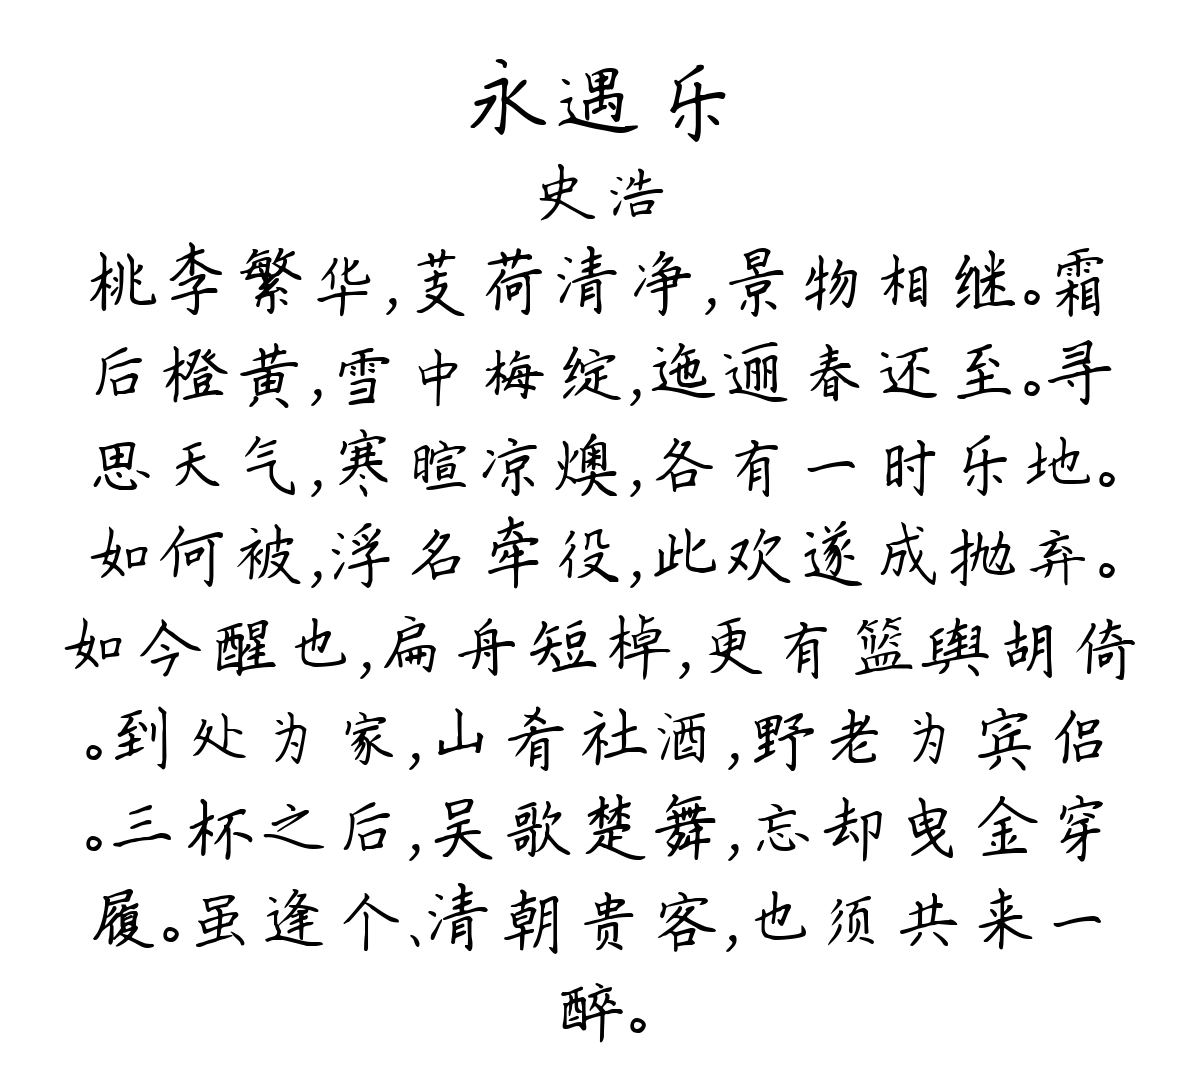 永遇乐
史浩
桃李繁华,芰荷清净,景物相继。霜
后橙黄,雪中梅绽,迤逦春还至。寻
思天气,寒暄凉燠,各有一时乐地。
如何被,浮名牵役,此欢遂成抛弃。
如今醒也,扁舟短棹,更有篮舆胡倚
。到处为家,山肴社酒,野老为宾侣
。三杯之后,吴歌楚舞,忘却曳金穿
履。虽逢个、清朝贵客,也须共来一
醉。